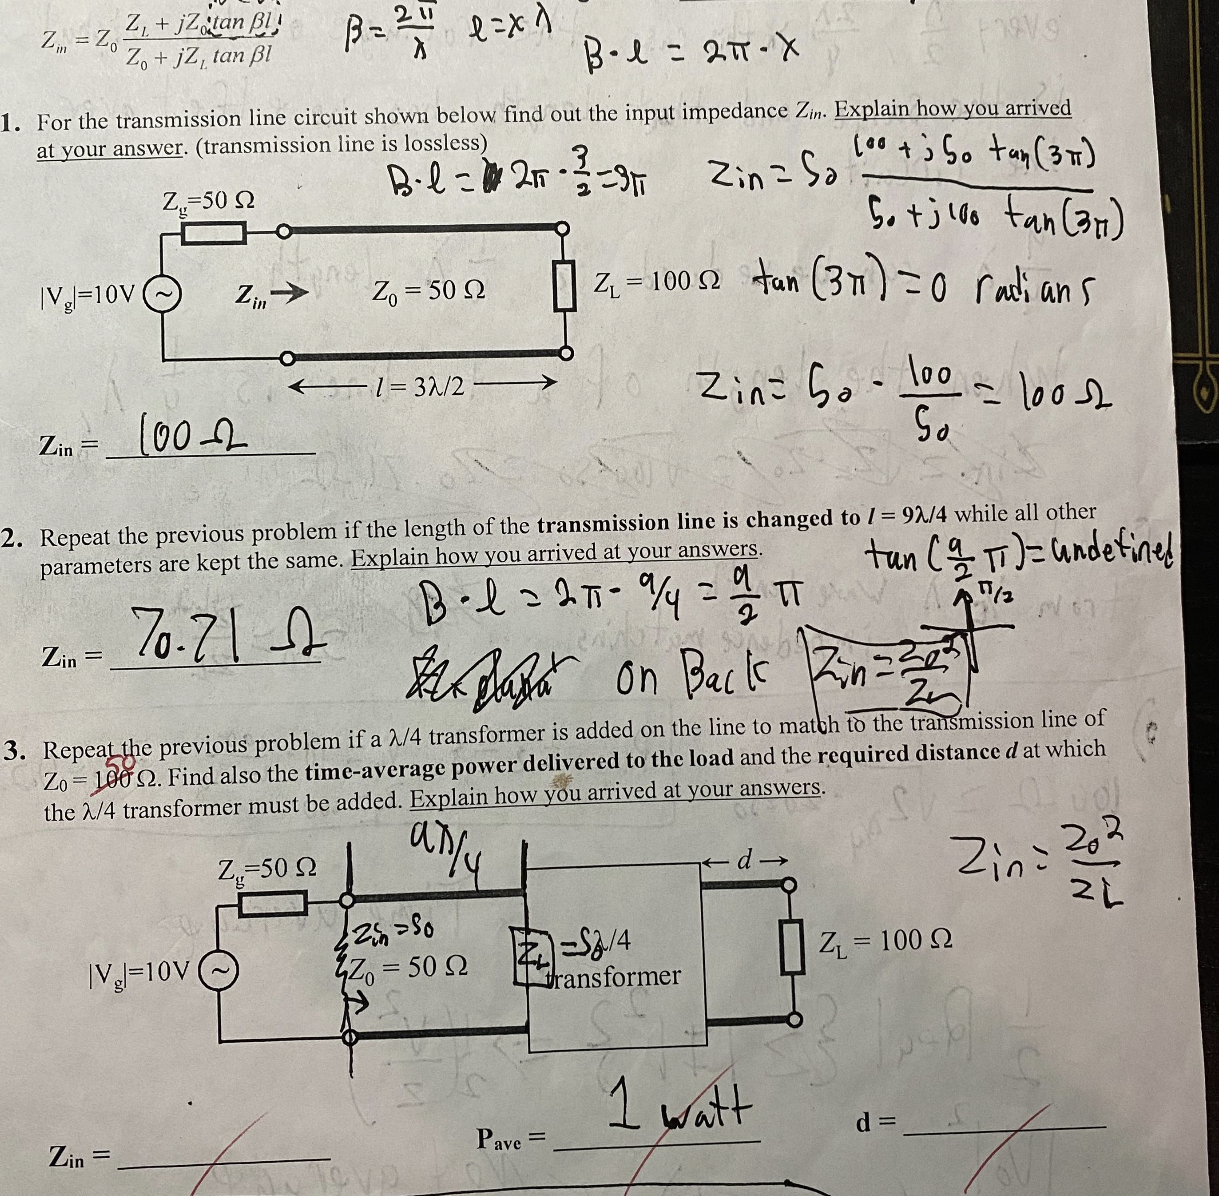 Z_in = Z_0 (Z_L + jZ_0 tan βl) / (Z_0 + jZ_L tan βl)
β = 2π/λ  l = x λ
B·l = 2π·x
1. For the transmission line circuit shown below find out the input impedance Zin. Explain how you arrived
at your answer. (transmission line is lossless)
B·l = 2π · 3/2 = 3π
Zin = 50 (100 + j50 tan(3π)) / (50 + j100 tan(3π))
Z_g=50 Ω
|V_g|=10V
Z_in
Z_0 = 50 Ω
Z_L = 100 Ω
tan(3π) = 0 radians
l = 3λ/2
Zin = 50 · 100/50 = 100 Ω
Zin = 100 Ω
2. Repeat the previous problem if the length of the transmission line is changed to l = 9λ/4 while all other
parameters are kept the same. Explain how you arrived at your answers.
tan(9/2 π) = undefined
B·l = 2π · 9/4 = 9/2 π
π/2
Zin = 70.71 Ω
on Back
3. Repeat the previous problem if a λ/4 transformer is added on the line to match to the transmission line of
50
Z0 = 100 Ω. Find also the time-average power delivered to the load and the required distance d at which
the λ/4 transformer must be added. Explain how you arrived at your answers.
9λ/4
Zin = Zo²/ZL
Z_g=50 Ω
d
Zin = 50
ZL
λ/4
Z_L = 100 Ω
|V_g|=10V
Z_0 = 50 Ω
transformer
Zin =
Pave = 1 watt
d =